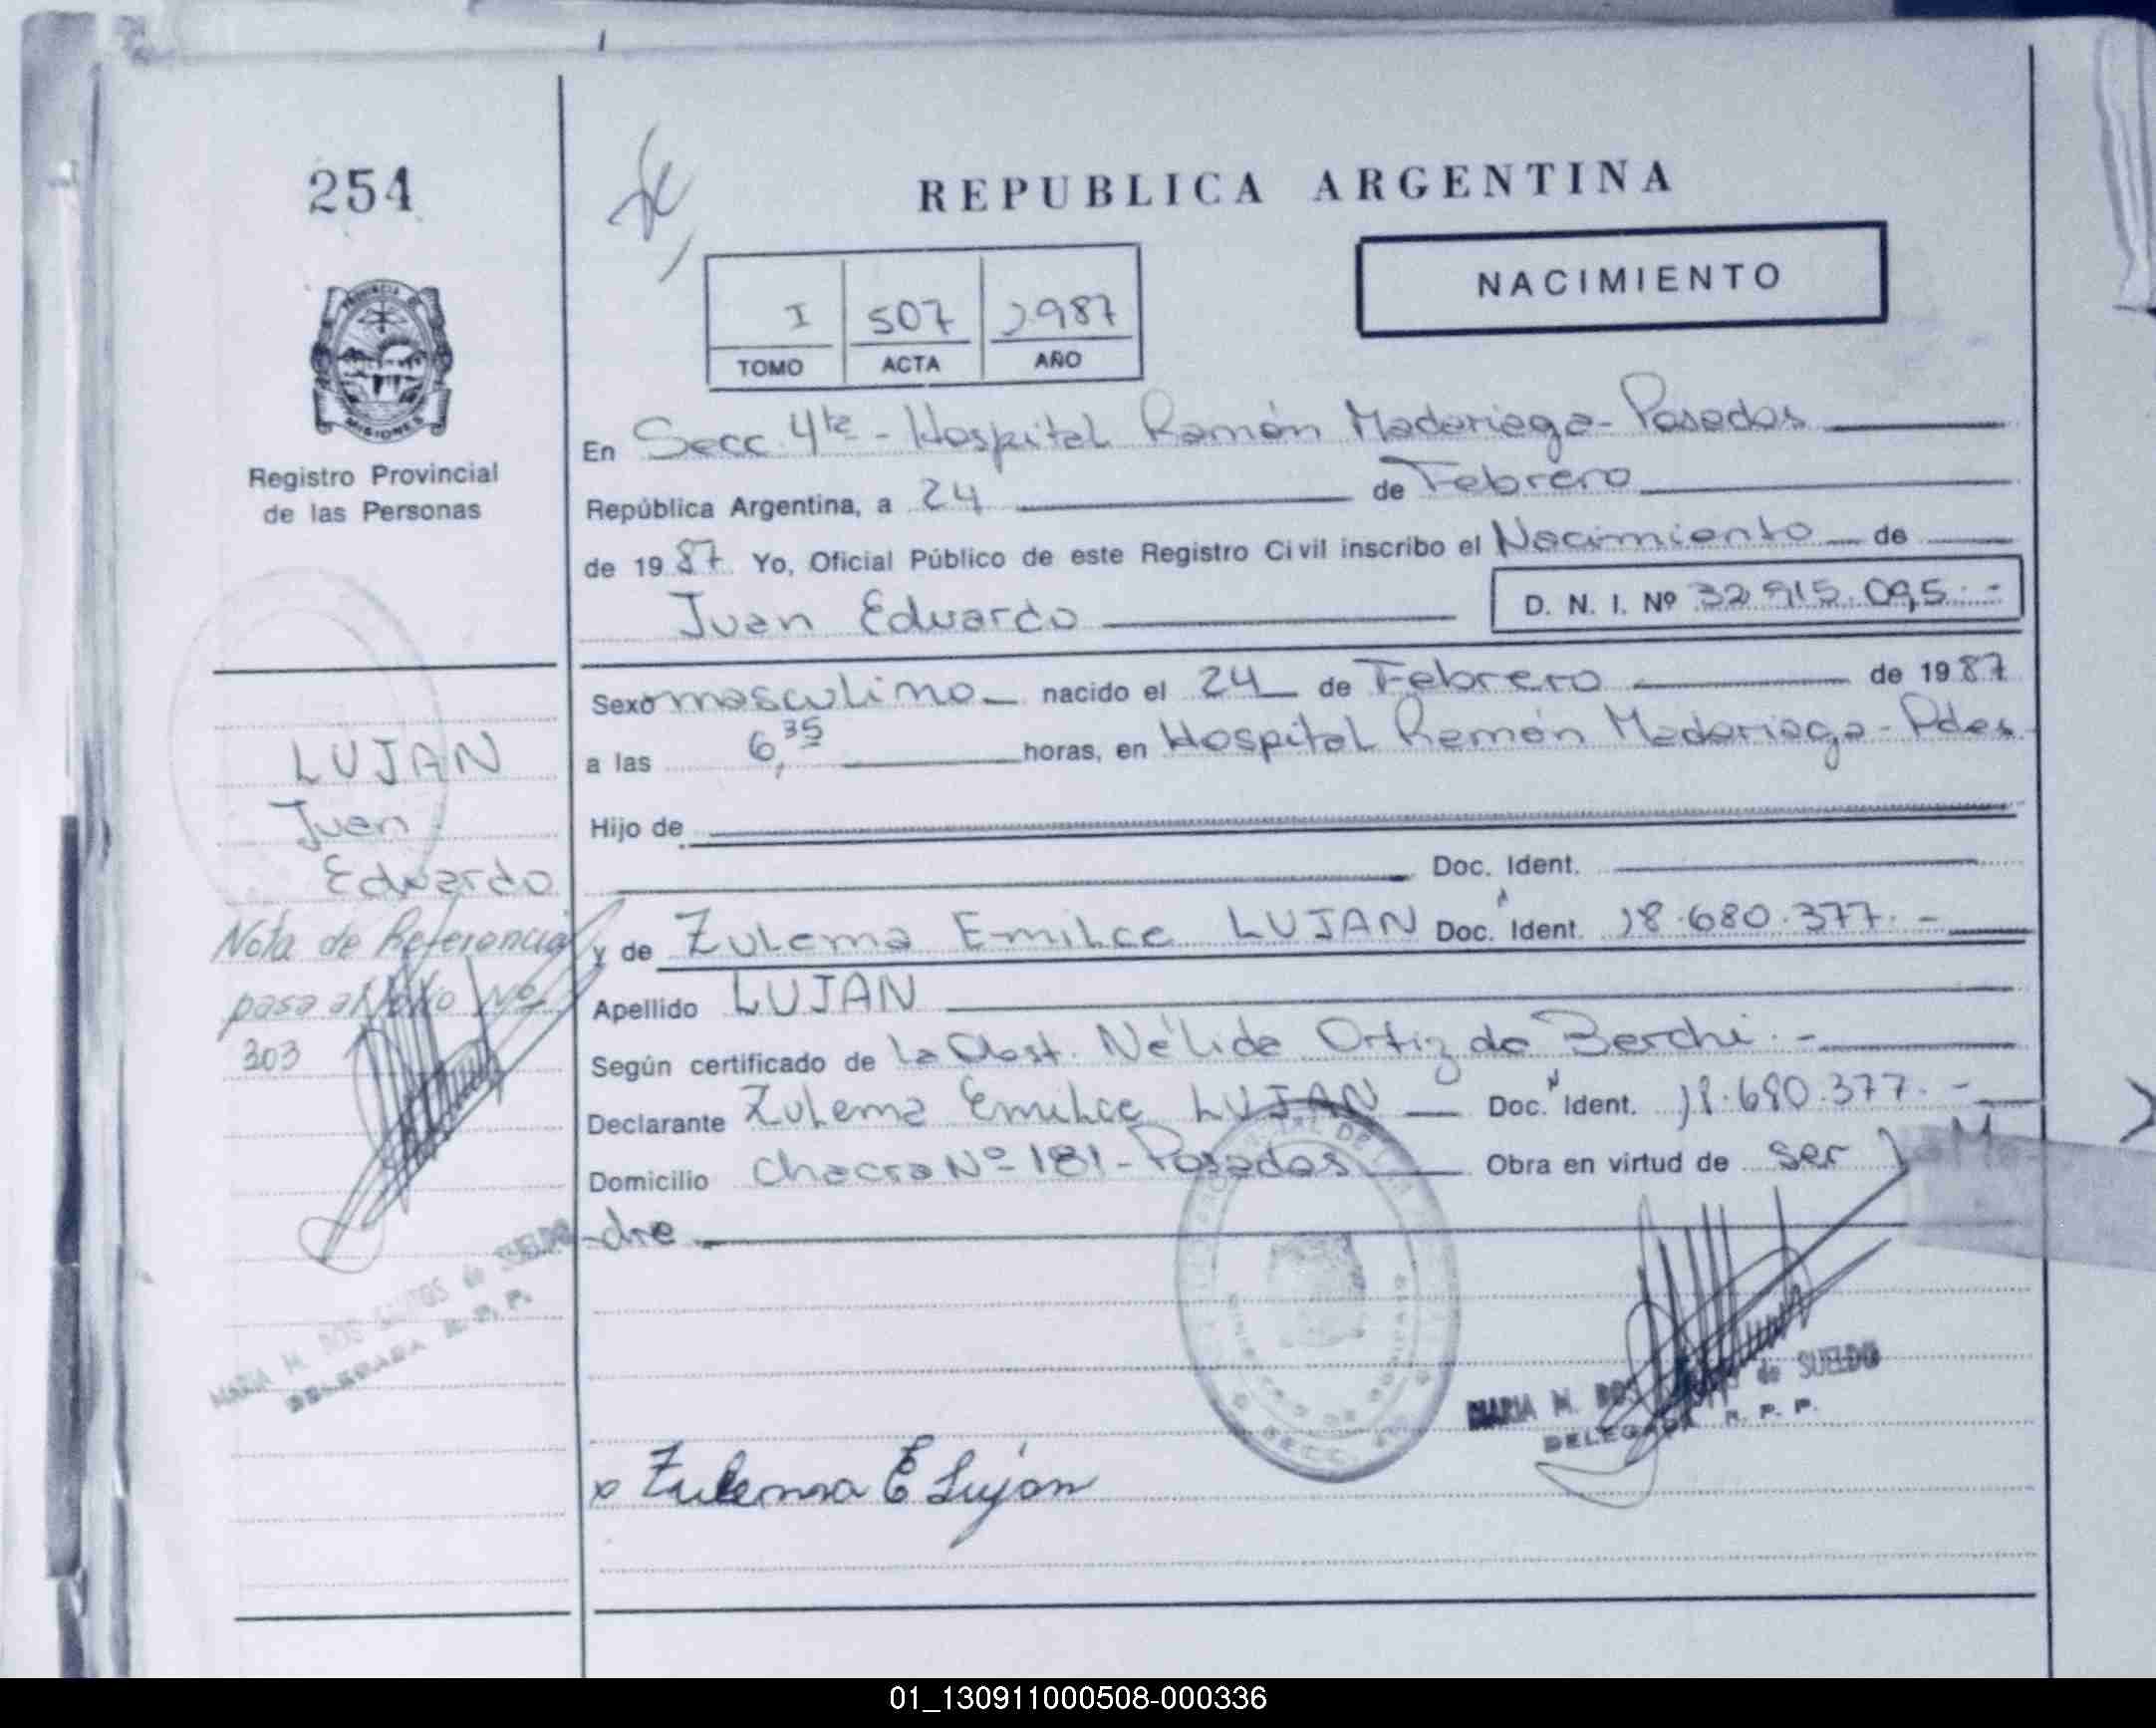 254
REPUBLICA ARGENTINA
NACIMIENTO
I 507 1987
TOMO ACTA AÑO
PROVINCIA DE
MISIONES
Registro Provincial
de las Personas
En Secc 4ta - Hospital Ramón Madariaga - Posadas
República Argentina, a 24 de Febrero
de 1987 Yo, Oficial Público de este Registro Civil inscribo el Nacimiento de
Juan Eduardo D. N. I. Nº 32.915.095.-
Sexo masculino nacido el 24 de Febrero de 1987
a las 6,35 horas, en Hospital Ramón Madariaga - Pdas
Hijo de
Doc. Ident.
y de Zulema Emilce LUJAN Doc. Ident. 18.680.377.-
Apellido LUJAN
Según certificado de la Obst. Nélida Ortiz de Berchi.-
Declarante Zulema Emilce LUJAN Doc. Ident. 18.680.377.-
Domicilio Chacra Nº 181 - Posadas Obra en virtud de ser la Ma-
-dre
LUJAN
Juan
Eduardo
Nota de Referencia
pasa al folio Nº
303
MARIA M. DOS SANTOS de SUELDO
DELEGADA R. P. P.
MARIA M. DOS de SUELDO
DELEGADA R. P. P.
x Zulema E Lujan
01_130911000508-000336